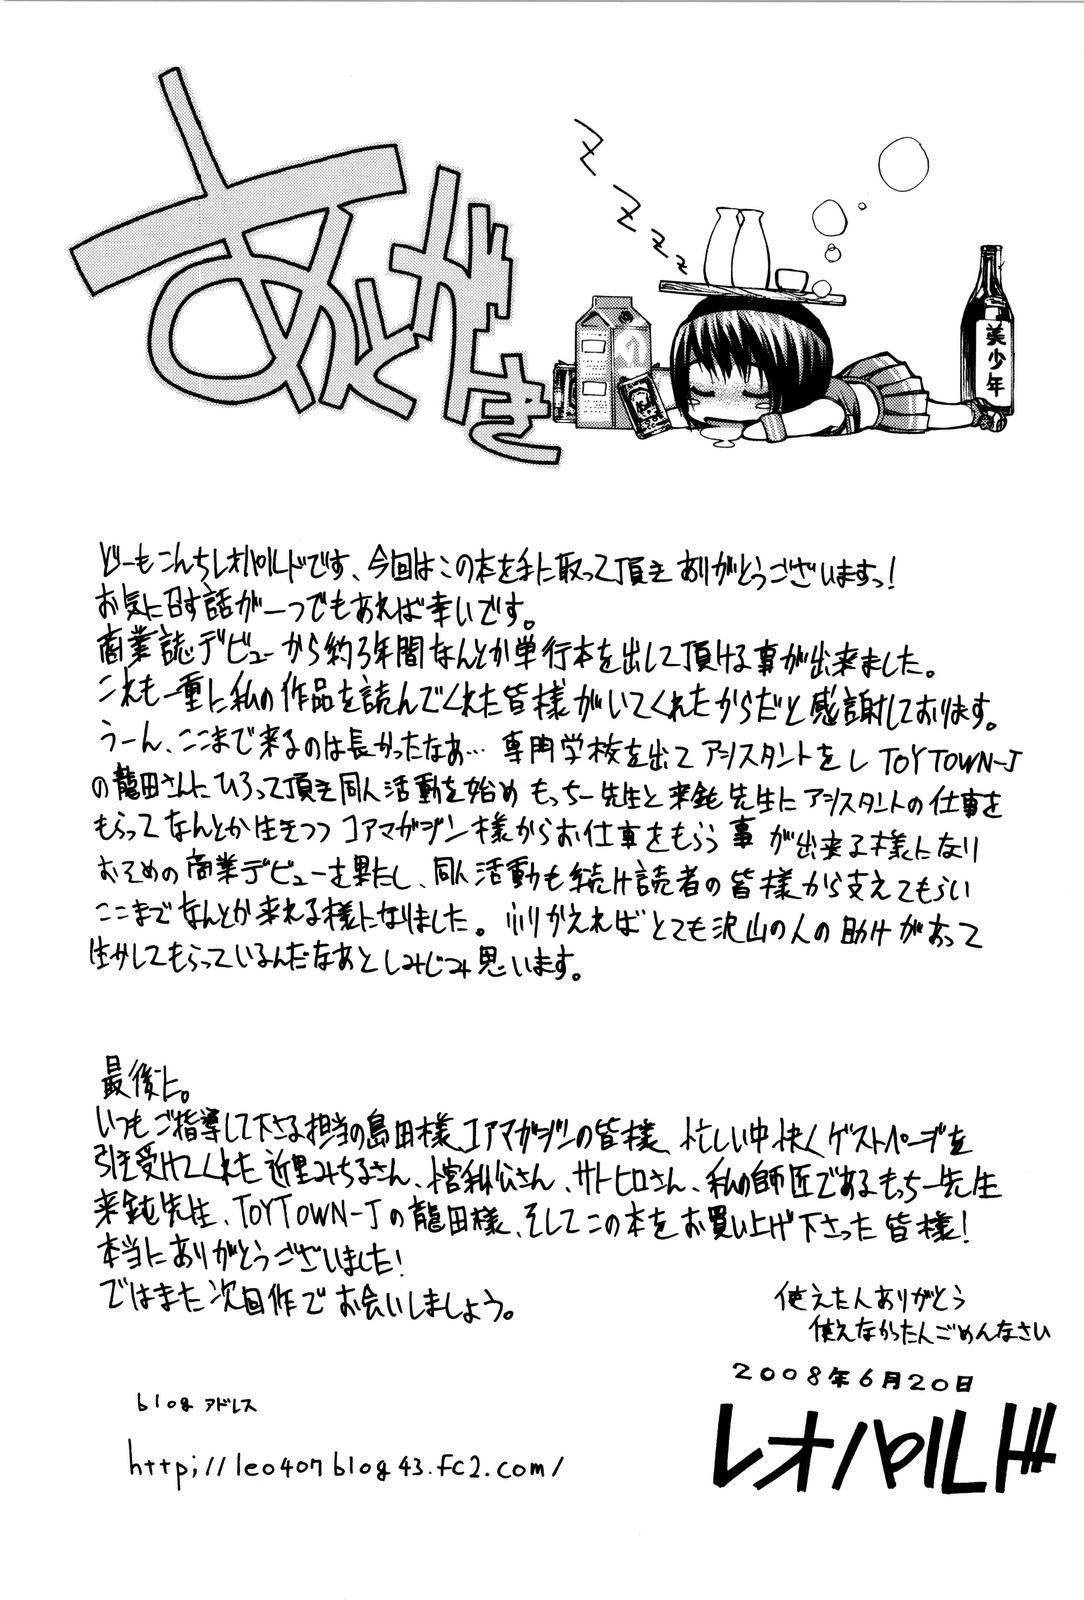 あとがき
美少年
どーもこんちレオパルドです、今回はこの本を手に取って頂きありがとうございますっ!
お気に召す話が一つでもあれば幸いです。
商業誌デビューから約3年間なんとか単行本を出して頂ける事が出来ました。
これも一重に私の作品を読んでくれた皆様がいてくれたからだと感謝しております。
うーん、ここまで来るのは長かったなぁ… 専門学校を出て アシスタントをし TOYTOWN-J
の龍田さんにひろって頂き同人活動を始め もっちー先生と来鈍先生にアシスタントの仕事を
もらってなんとか生きつつ コアマガジン様からお仕事をもらう事が出来る様になり
おそめの商業デビューを果たし、同人活動も続け読者の皆様から支えてもらい
ここまでなんとか来れる様になりました。ふりかえればとても沢山の人の助けがあって
生かしてもらっているんだなあとしみじみ思います。
最後に。
いつもご指導して下さる担当の島田様、コアマガジンの皆様、忙しい中快くゲストページを
引き受けてくれた近里みちるさん、サトヒロさん、私の師匠であるもっちー先生
来鈍先生、TOYTOWN-Jの龍田様、そしてこの本をお買い上げ下さった皆様!
本当にありがとうございました!
ではまた次回作でお会いしましょう。
使えた人ありがとう
使えなかった人ごめんなさい
2008年6月20日
レオパルド
blog アドレス
http;//leo407blog43.fc2.com/